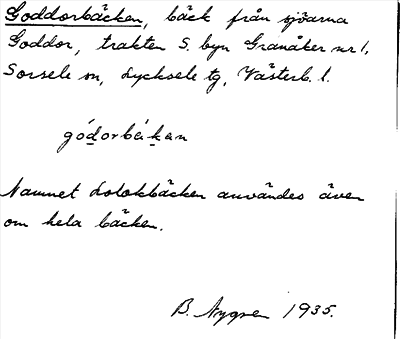 Goddorbäcken, bäck från sjöarna
Goddor, trakten S. byn Granåker nr 1,
Sorsele sn, Lycksele tg, Västerb. l.
gódorbä́ken
Namnet Solokbäcken användes även
om hela bäcken.
B. Nygren 1935.